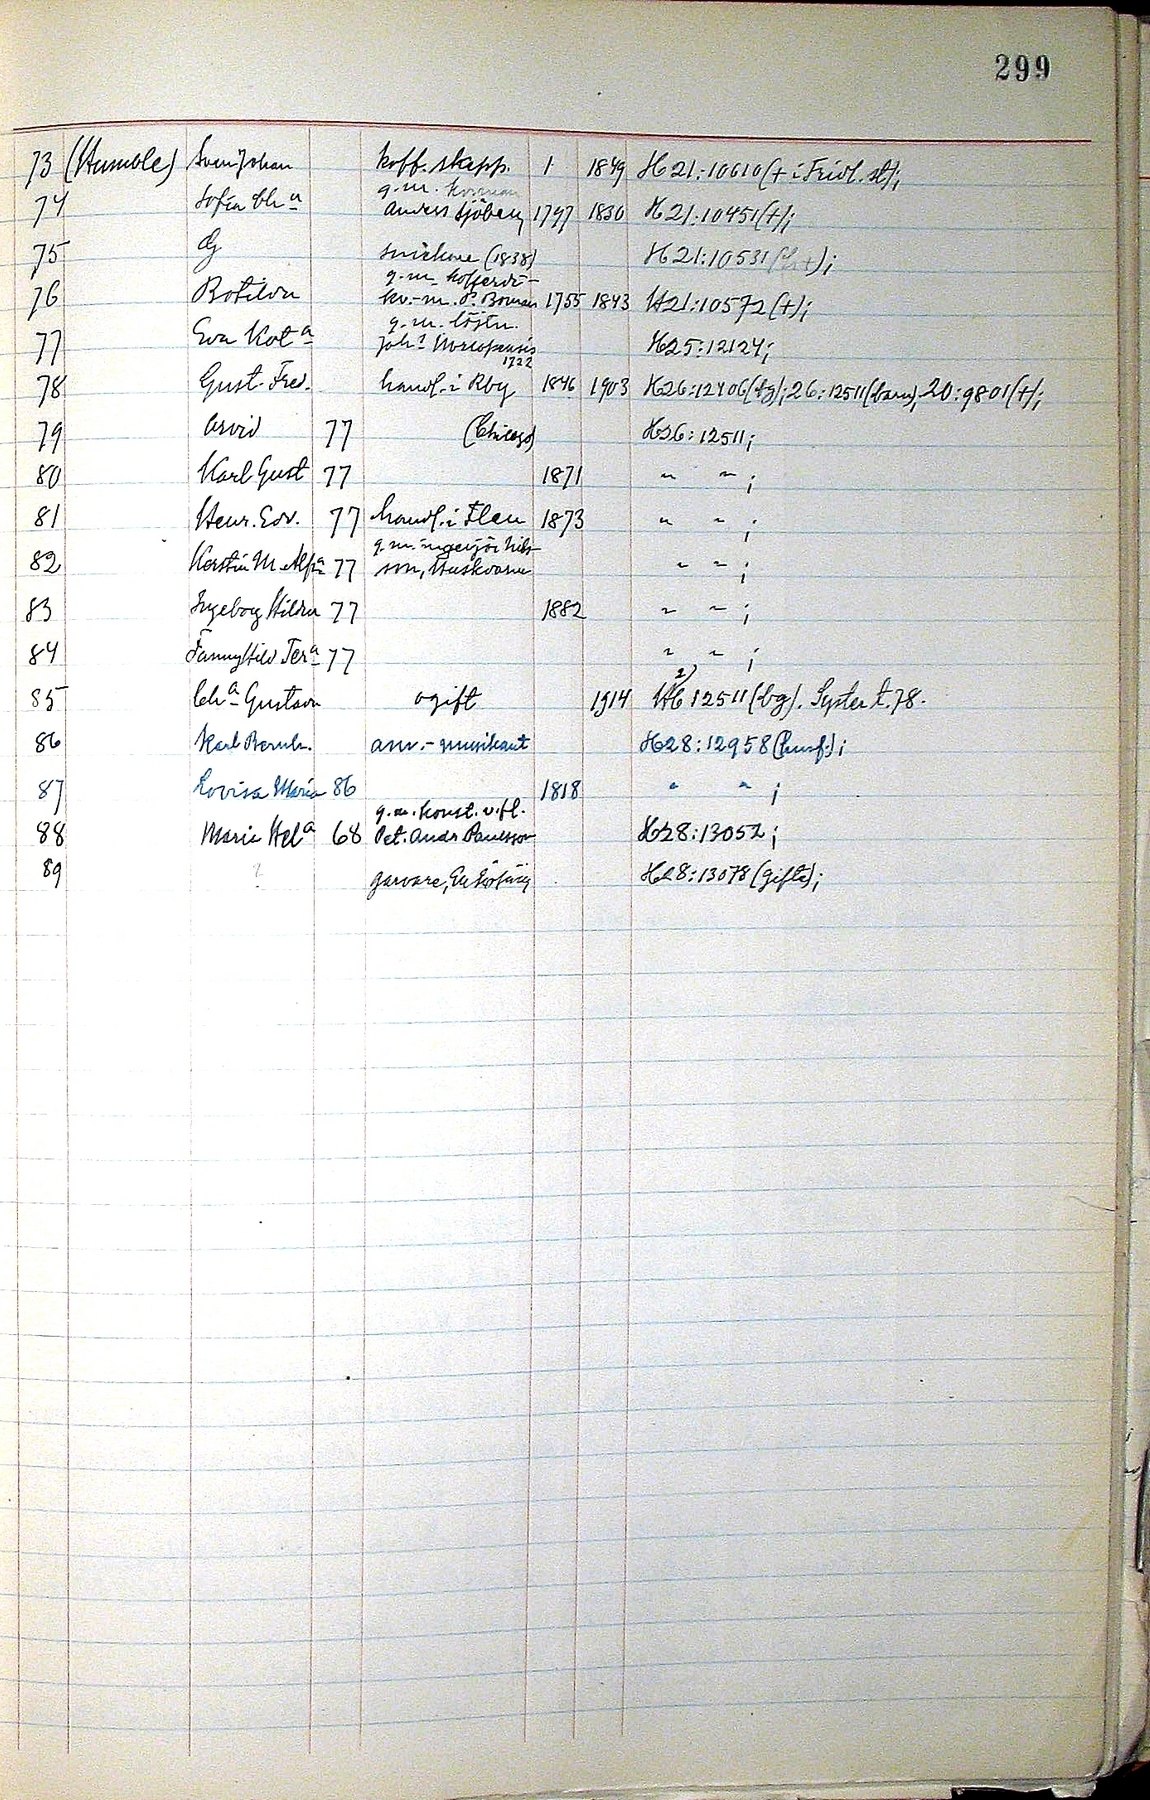 299
73 (Humble) Sven Johan koff. skepp. 1 1849 H21:10610 (+ i Fridl. st);
g.m. korman
74 Sofia Ch:a Anders Sjöberg 1797 1830 H21:10451 (+);
75 G snickare (1838) H21:10531 (+);
g.m. kofferdi-
76 Botilda kv.-m. P. Boman 1755 1843 H21:10572 (+);
g.m. löjtn.
77 Eva Kat:a Joh:s 1722 H25:12124;
78 Gust. Fred. handl. i Rby 1846 1903 H26:12406 (fg); 26:12511 (barn); 20:9801 (+);
79 Arvid 77 (Chicago) H26:12511;
80 Karl Gust 77 1871 " " ;
81 Henr. Edv. 77 handl. i Flen 1873 " " ;
g.m. ingenjör Nils-
82 Kerstin M. 77 son, Huskvarna " " ;
83 Ingeborg Hilda 77 1882 " " ;
84 Fanny Hild Ter:a 77 " " ;
85 Ch:a Gustava ogift 1914 H26 12511 (bg). Syster t. 78.
86 Karl Bernh. amr.-musikant H28:12958 (husf.);
87 Lovisa Maria 86 1818 " " ;
g.m. konst. v. fl.
88 Maria Hel:a 68 Pet. Andr. Paulsson H28:13052;
89 ? garvare, H28:13078 (gifta);